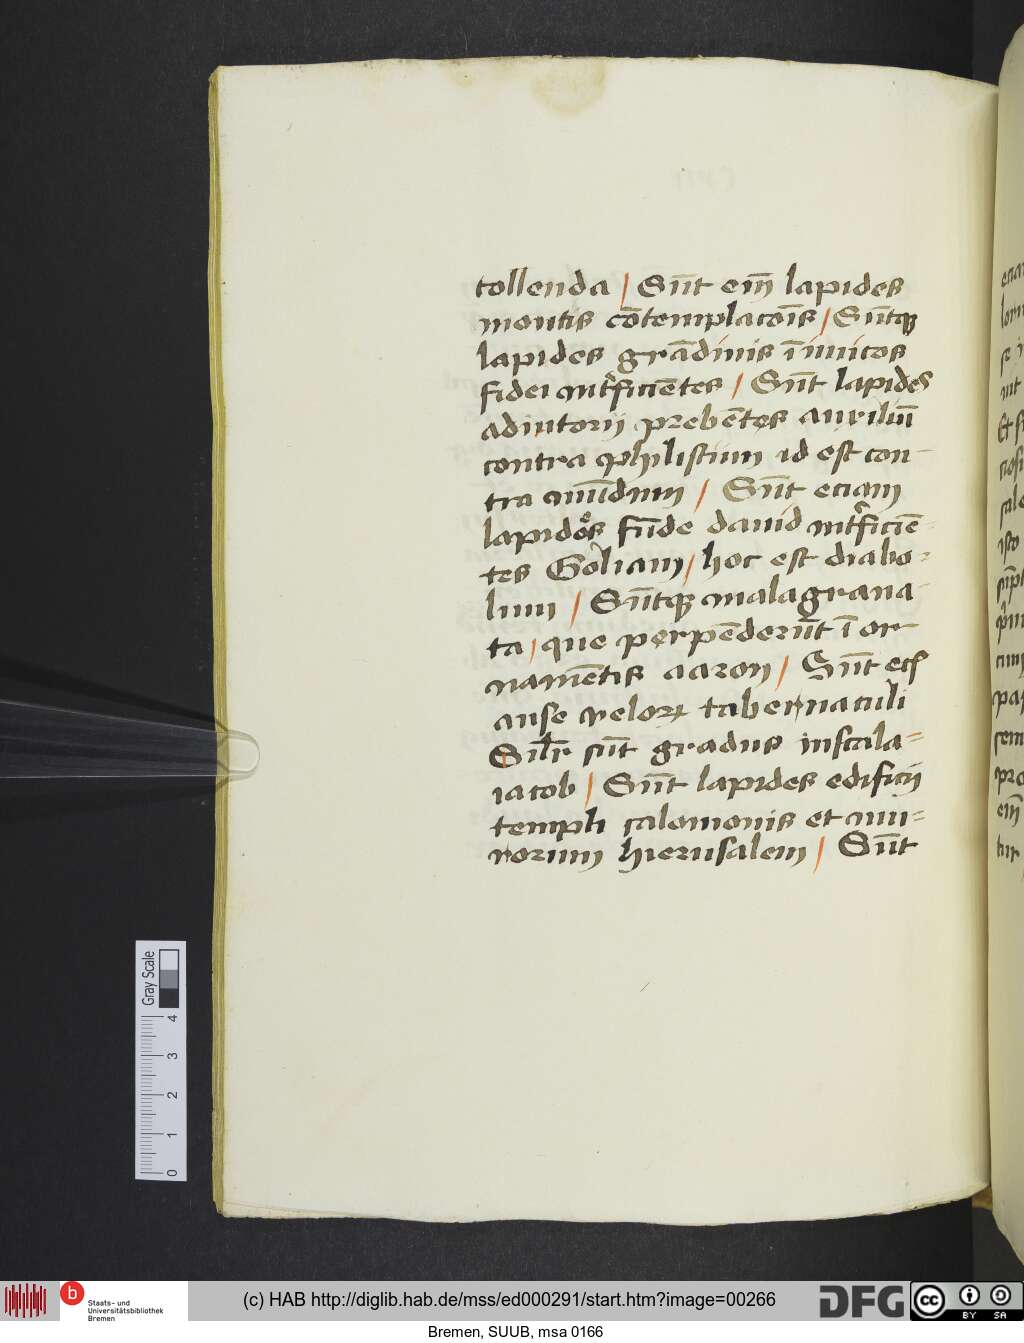 tollenda / Su̅t em̅ lapides
montis co̅templaco̅is / Su̅tqꝫ
lapides gra̅dinis i̅imicos
fidei int̾ficie̅tes / Su̅t lapides
adiutorij prebe̅tes auxiliu̅
contra philistiim id est con-
tra mu̅dum / Su̅t eciam
lapides fu̅de dauid int̾ficie̅-
tes Goliam / hoc est diabo-
lum / Su̅tqꝫ malagrana-
ta / que perpenderu̅t i̅ or-
name̅tis aaron / Su̅t
anse veloꝝ tabernaculi
Silr̅ su̅t gradus inscala=
iacob / Su̅t lapides edificij
templi salomonis et mu=
rorum hierusalem / Su̅t
Gray Scale
0 1 2 3 4
b Staats- und
Universitätsbibliothek
Bremen
(c) HAB http://diglib.hab.de/mss/ed000291/start.htm?image=00266
DFG
cc BY SA
Bremen, SUUB, msa 0166